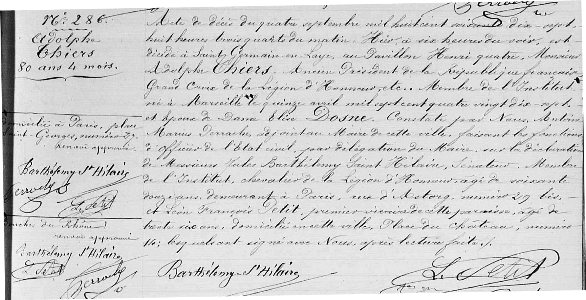 No. 286.
Adolphe
Thiers
80 ans 4 mois.
domicilié à Paris, place
Saint-Georges,
renvoi approuvé
Barthélemy St Hilaire
L. Petit
Bouches du Rhône
renvoi approuvé
Barthélemy St Hilaire
L. Petit
Acte de décès du quatre septembre mil huit cent soixante dix sept,
huit heures trois quarts du matin. Hier, à six heures du soir, est
décédé à Saint Germain en Laye, au Pavillon Henri quatre, Monsieur
Adolphe Thiers, Ancien Président de la République française,
Grand Croix de la Légion d'Honneur, etc. Membre de l'Institut
né à Marseille le quinze avril mil sept cent quatre vingt dix sept,
et époux de Dame Elise Dosne. Constaté par Nous, Antoine
Marius adjoint au Maire de cette ville, faisant les fonctions
d'officier de l'État civil, par délégation du Maire, sur la déclaration
de Messieurs Jules Barthélemy Saint Hilaire, Sénateur, Membre
de l'Institut, chevalier de la Légion d'Honneur, âgé de soixante
douze ans demeurant à Paris, rue d'Astorg, numéro 29 bis, -
et Léon François Petit, premier vicaire de cette paroisse, âgé de
trente six ans, domicilié en cette ville, Place du Château, numéro
14; lesquels ont signé avec Nous, après lecture faite.
Barthélemy St Hilaire
L. Petit